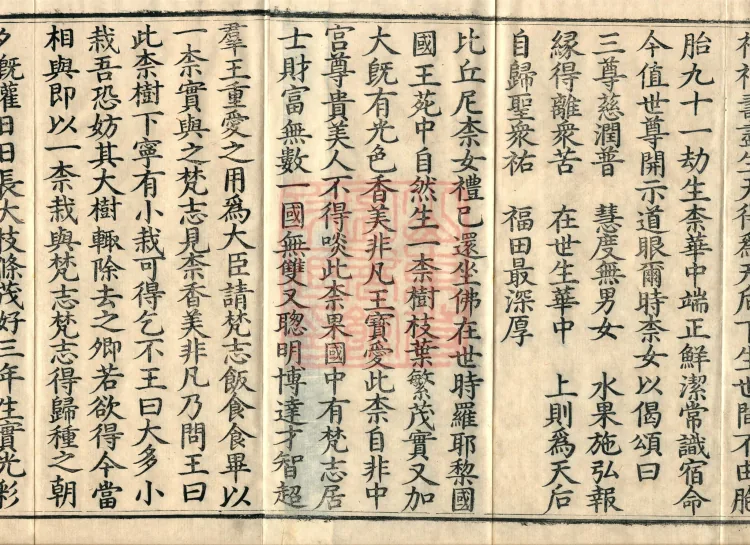 生天得爲天后下生世間不由胞
胎九十一劫生柰華中端正鮮潔常識宿命
今值世尊開示道眼爾時柰女以偈頌曰
三尊慈潤普 慧度無男女 水果施弘報
緣得離衆苦 在世生華中 上則爲天后
自歸聖衆祐 福田最深厚
比丘尼柰女禮已還坐佛在世時羅耶黎國
國王苑中自然生一柰樹枝葉繁茂實又加
大旣有光色香美非凡王寶愛此柰自非中
宮尊貴美人不得啖此柰果國中有梵志居
士財富無數一國無雙又聰明博達才智超
羣王重愛之用爲大臣請梵志飯食食畢以
一柰實與之梵志見柰香美非凡乃問王曰
此柰樹下寧有小栽可得乞不王曰大多小
栽吾恐妨其大樹輒除去之卿若欲得今當
相與即以一柰栽與梵志梵志得歸種之朝
夕旣灌日日長大枝條茂好三年生實光彩